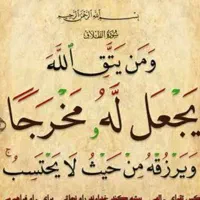 بِسْمِ اللَّهِ الرَّحْمَنِ الرَّحِيمِ
سُورَةُ الطَّلَاقِ
وَمَن يَتَّقِ اللَّهَ
يَجْعَل لَّهُ مَخْرَجًا
وَيَرْزُقْهُ مِنْ حَيْثُ لَا يَحْتَسِبُ ۚ